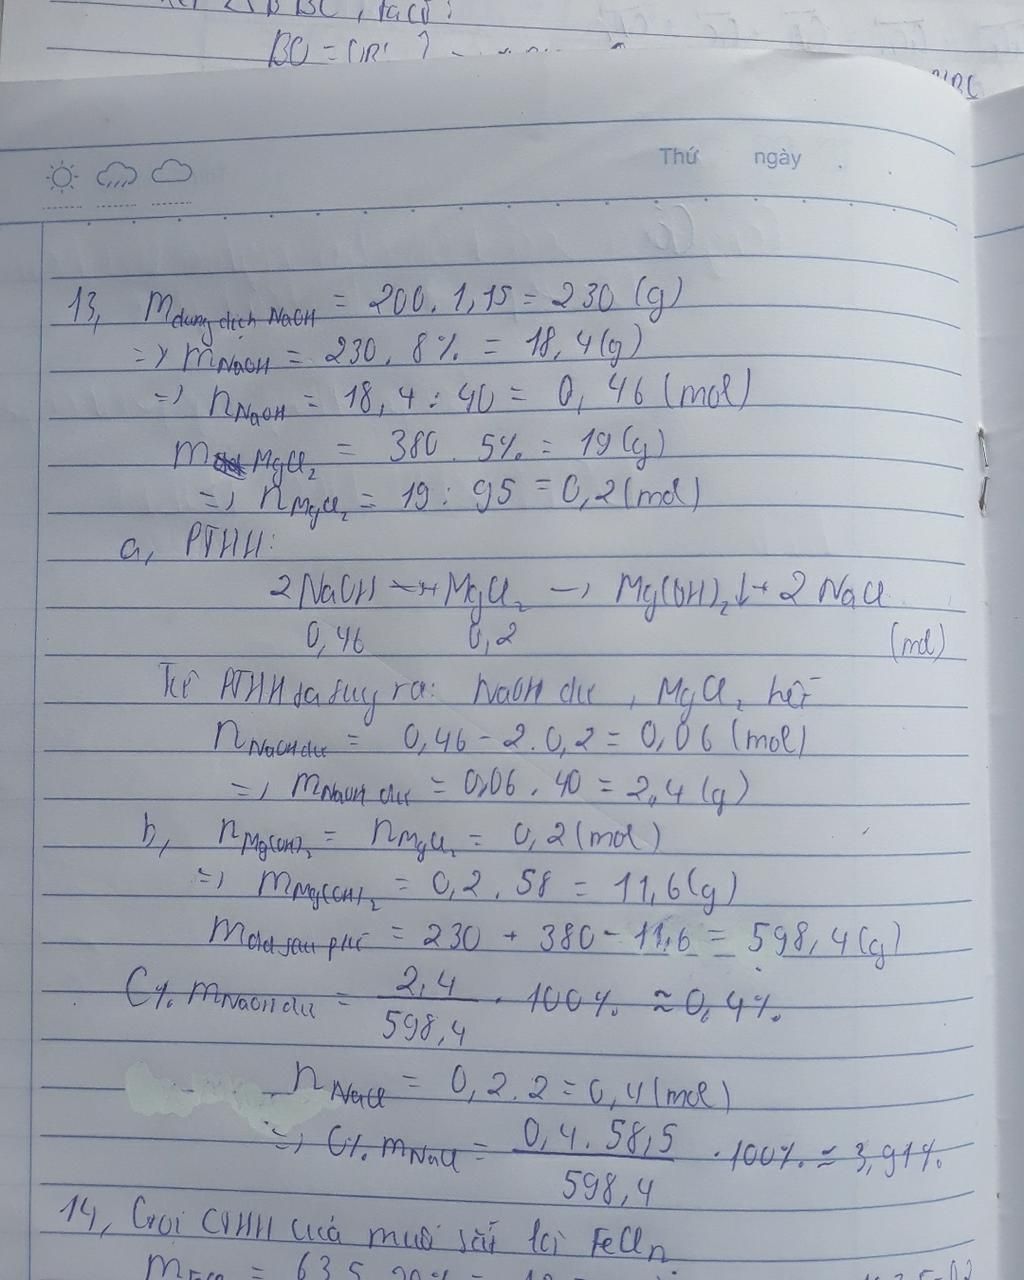 BC
Thứ ngày
13, m dung dịch NaOH = 200. 1,15 = 230 (g)
=> mNaOH = 230. 8% = 18,4(g)
=> nNaOH = 18,4 : 40 = 0,46 (mol)
m MgCl2 = 380. 5% = 19 (g)
=> nMgCl2 = 19 : 95 = 0,2 (mol)
a, PTHH:
2NaOH + MgCl2 → Mg(OH)2↓ + 2NaCl
0,46 0,2 (mol)
Từ PTHH ta suy ra: NaOH dư, MgCl2 hết
nNaOH dư = 0,46 - 2.0,2 = 0,06 (mol)
=> mNaOH dư = 0,06. 40 = 2,4 (g)
b, nMg(OH)2 = nMgCl2 = 0,2 (mol)
=> mMg(OH)2 = 0,2. 58 = 11,6(g)
mdd sau pứ = 230 + 380 - 11,6 = 598,4(g)
C% mNaOH dư = 2,4/598,4 . 100% ≈ 0,4%
nNaCl = 0,2.2 = 0,4 (mol)
=> C% mNaCl = 0,4.58,5/598,4 . 100% ≈ 3,91%
14, Gọi CTHH của muối sắt là FeCln